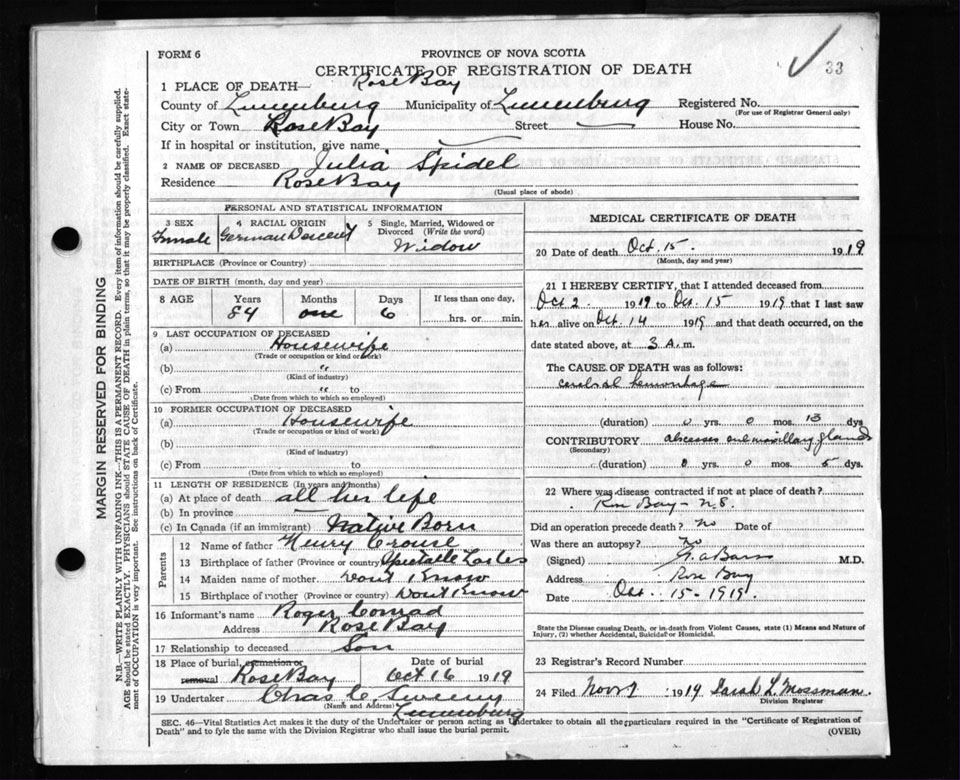 33
FORM 6
PROVINCE OF NOVA SCOTIA
CERTIFICATE OF REGISTRATION OF DEATH
1 PLACE OF DEATH— Rose Bay
County of Lunenburg Municipality of Lunenburg Registered No.
(For use of Registrar General only)
City or Town Rose Bay Street — House No.
If in hospital or institution, give name
2 NAME OF DECEASED Julia Spidel
Residence Rose Bay
(Usual place of abode)
PERSONAL AND STATISTICAL INFORMATION
3 SEX Female
4 RACIAL ORIGIN German Descent
5 Single, Married, Widowed or Divorced (Write the word) Widow
BIRTHPLACE (Province or Country)
DATE OF BIRTH (month, day and year)
8 AGE Years Months Days If less than one day,
84 one 6 hrs. or min.
9 LAST OCCUPATION OF DECEASED
(a) Housewife
(Trade or occupation or kind of work)
(b) "
(Kind of industry)
(c) From " to
(Date from which to which so employed)
10 FORMER OCCUPATION OF DECEASED
(a) Housewife
(Trade or occupation or kind of work)
(b)
(Kind of industry)
(c) From to
(Date from which to which so employed)
11 LENGTH OF RESIDENCE (In years and months)
(a) At place of death all her life
(b) In province —
(c) In Canada (if an immigrant) Native Born
Parents
12 Name of father Henry Crouse
13 Birthplace of father (Province or country)
14 Maiden name of mother Dont Know
15 Birthplace of mother (Province or country) Dont Know
16 Informant's name Roger Conrad
Address Rose Bay
17 Relationship to deceased Son
18 Place of burial, cremation or removal Rose Bay Date of burial Oct 16 1919
19 Undertaker Chas C Sweeny
(Name and Address) Lunenburg
MEDICAL CERTIFICATE OF DEATH
20 Date of death Oct. 15 1919
(Month, day and year)
21 I HEREBY CERTIFY, that I attended deceased from
Oct 2 1919 to Oct. 15 1919 that I last saw
her alive on Oct. 14 1919 and that death occurred, on the
date stated above, at 3 A. m.
The CAUSE OF DEATH was as follows:
cerebral hemorrhage
(duration) 0 yrs. 0 mos. 13 dys
CONTRIBUTORY abscesses maxillary glands
(Secondary)
(duration) 0 yrs. 0 mos. 5 dys.
22 Where was disease contracted if not at place of death?
Rose Bay — N.S.
Did an operation precede death? no Date of
Was there an autopsy? no
(Signed) M.D.
Address Rose Bay
Date Oct. 15 - 1919.
State the Disease causing Death, or in death from Violent Causes, state (1) Means and Nature of
Injury, (2) whether Accidental, Suicidal or Homicidal.
23 Registrar's Record Number
24 Filed Nov 1919 Sarah L. Mossman.
Division Registrar
SEC. 46—Vital Statistics Act makes it the duty of the Undertaker or person acting as Undertaker to obtain all the particulars required in the "Certificate of Registration of
Death" and to fyle the same with the Division Registrar who shall issue the burial permit.
(OVER)
MARGIN RESERVED FOR BINDING
N.B.—WRITE PLAINLY WITH UNFADING INK—THIS IS A PERMANENT RECORD. Every item of information should be carefully supplied.
AGE should be stated EXACTLY. PHYSICIANS should STATE CAUSE OF DEATH in plain terms, so that it may be properly classified. Exact statement of OCCUPATION is very important. See instructions on back of Certificate.